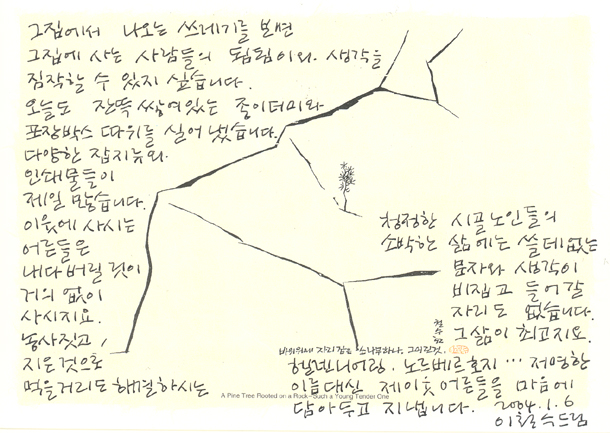 그집에서 나오는 쓰레기를 보면
그집에 사는 사람들의 됨됨이와 생각을
짐작할 수 있지 싶습니다.
오늘도 잔뜩 쌓여있는 종이더미와
포장박스 따위를 실어 냈습니다.
다양한 잡지류와
인쇄물들이
제일 많습니다.
이웃에 사시는
어른들은
내다 버릴 것이
거의 없이
사시지요.
농사짓고,
지은것으로
먹을거리도 해결하시는
청정한 시골노인들의
소박한 삶에는 쓸데없는
문자와 생각이
비집고 들어갈
자리도 없습니다.
그 삶이 최고지요.
철수 92
바위위에 자리잡은 소나무하나, 그 어린것.
A Pine Tree Rooted on a Rock - Such a Young Tender One
헬렌니어링, 노르베르호지 … 저명한
이름대신 제이웃어른들을 마음에
담아두고 지냅니다. 2004.1.6
이철수드림